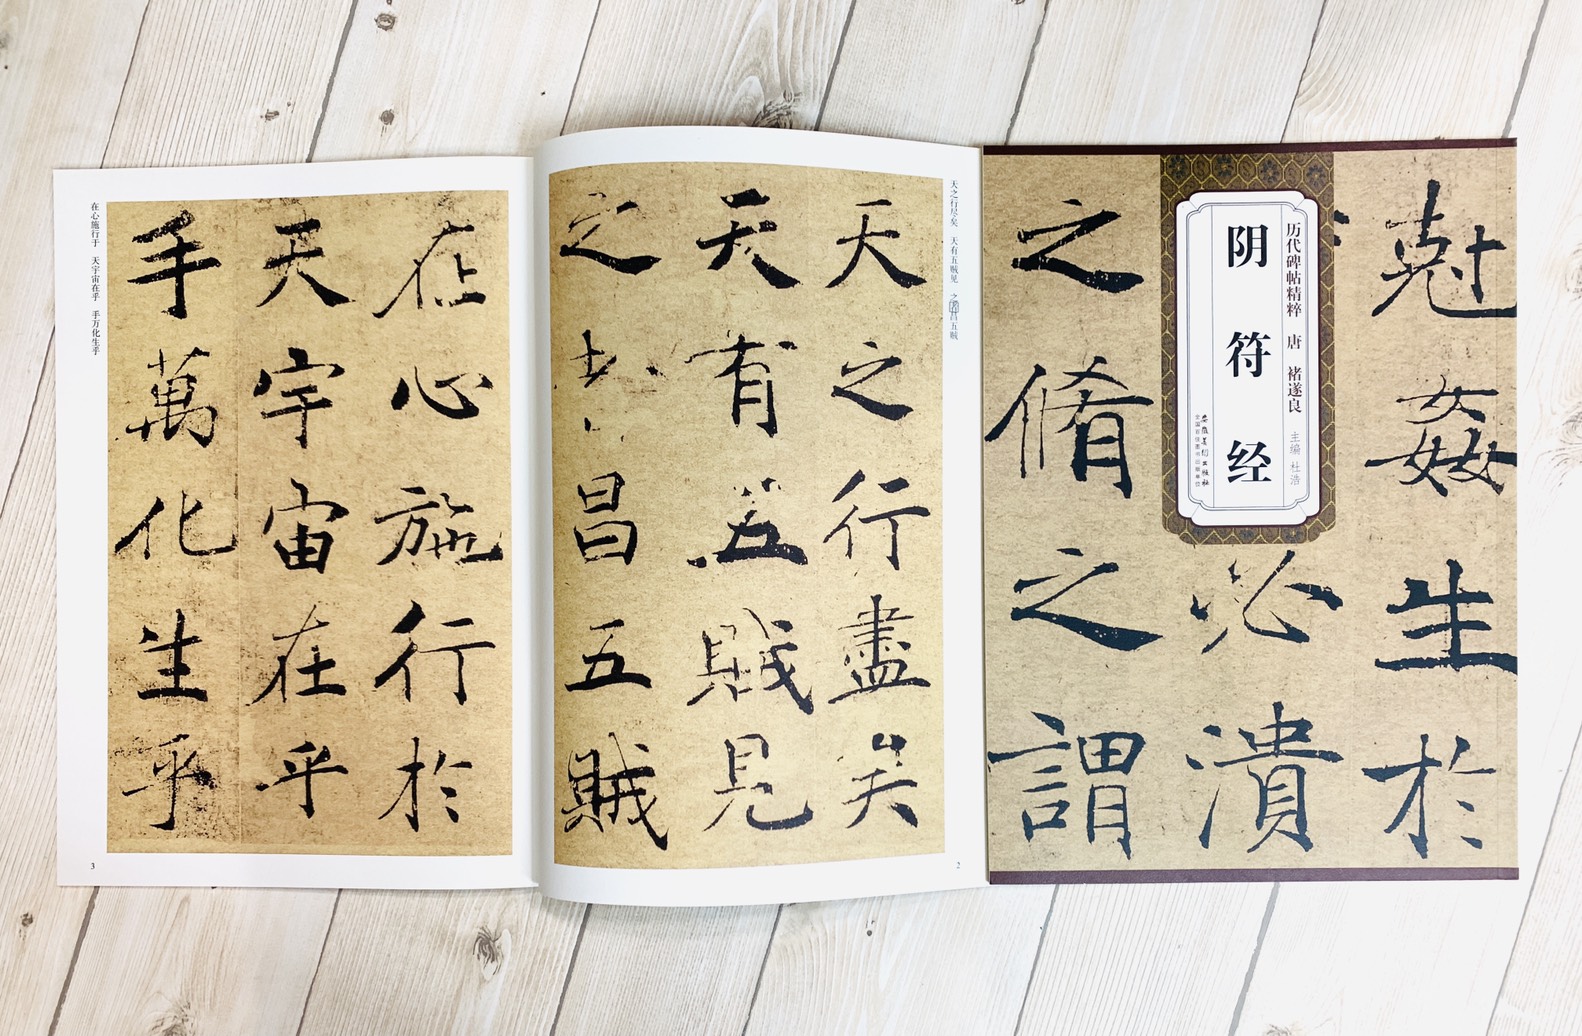 尅姦生於
必潰
之脩之謂
历代碑帖精粹 唐 褚遂良 主编 杜浩
阴符经
安徽美术出版社
全国百佳图书出版单位
天之行尽矣 天有五贼见 之昌五贼
天之行盡矣
天有五賊見
之昌五賊
2
在心施行於
天宇宙在乎
手萬化生乎
在心施行于 天宇宙在乎 手万化生乎
3